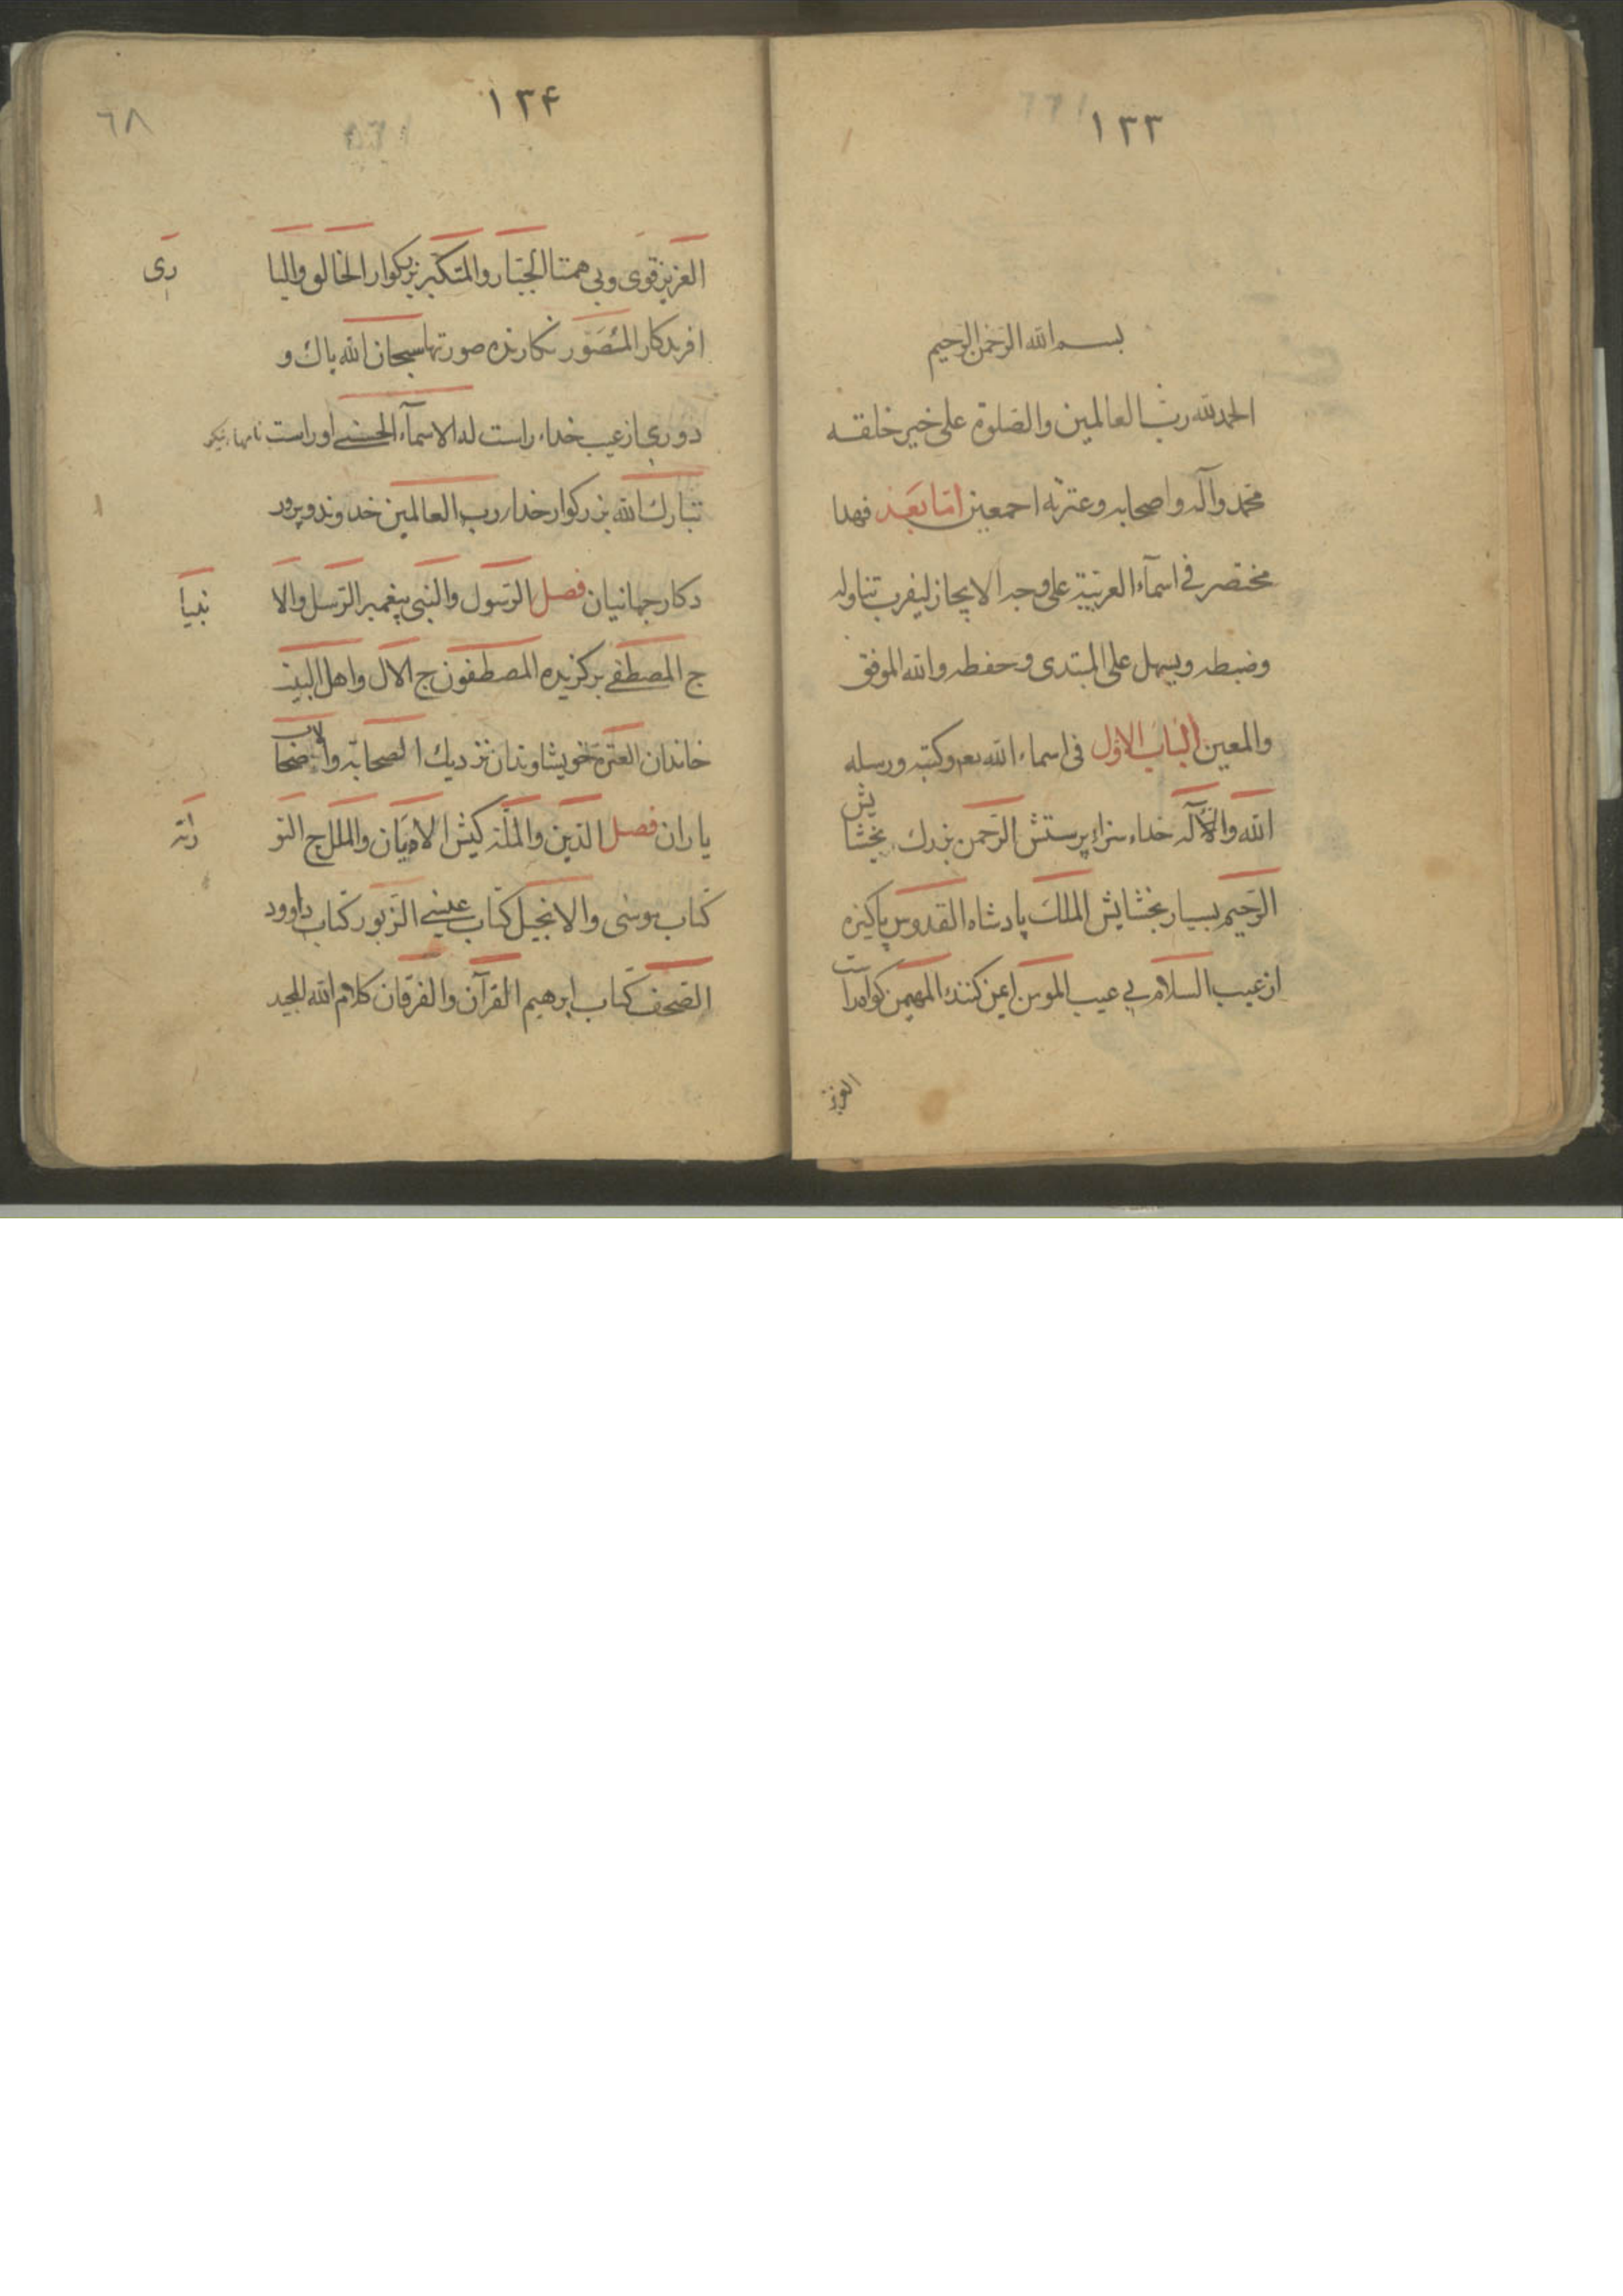 ۱۳۳
بسم الله الرحمن الرحیم
الحمدلله رب العالمین والصلوة علی خیر خلقه
محمد وآله واصحابه وعترته اجمعین امّا بَعد فهذا
مختصر فی اسمآء العربیّة علی وجه الایجاز لیقرب تناوله
وضبطه ویسهل علی المبتدی وحفظه والله الموفق
والمعین الباب الاوّل فی اسماء الله تعم وکتبه ورسله
الله والاآله خداء سزاء پرستش الرّحمن بزرك بخشایش
الرّحیم بسیار بخشایش الملك پادشاه القدوس پاکیزه
از عیب السلام بی عیب المومن ایمن کننده المهیمن کواه راست
العزیز
۱۳۴
٦٨
العزیز قوی وبی همتا الجبّار والمتکبّر بزرکوار الخالق والباری
افریدکار المُصَوّر نکارنده صورتها سبحان الله پاك و
دوری از عیب خداء راست له الاسمآء الحسنی اوراست نامهاء نیکو
تبارك الله بزرکوار خداء رب العالمین خداوند و پرور
دکار جهانیان فصل الرّسول والنّبی پیغمبر الرّسل والانبیآ
ج المصطفی برکزیده المصطفون ج الآل واهل البیت
خاندان العترة خویشاوندان نزدیك الصحابة والاصحاب
یاران فصل الدّین والملّة کیش الادیان والملل ج التوریة
کتاب موسی والانجیل کتاب عیسی الزّبور کتاب داوود
الصّحف کتاب ابرهیم القرآن والفرقان کلام الله المجید